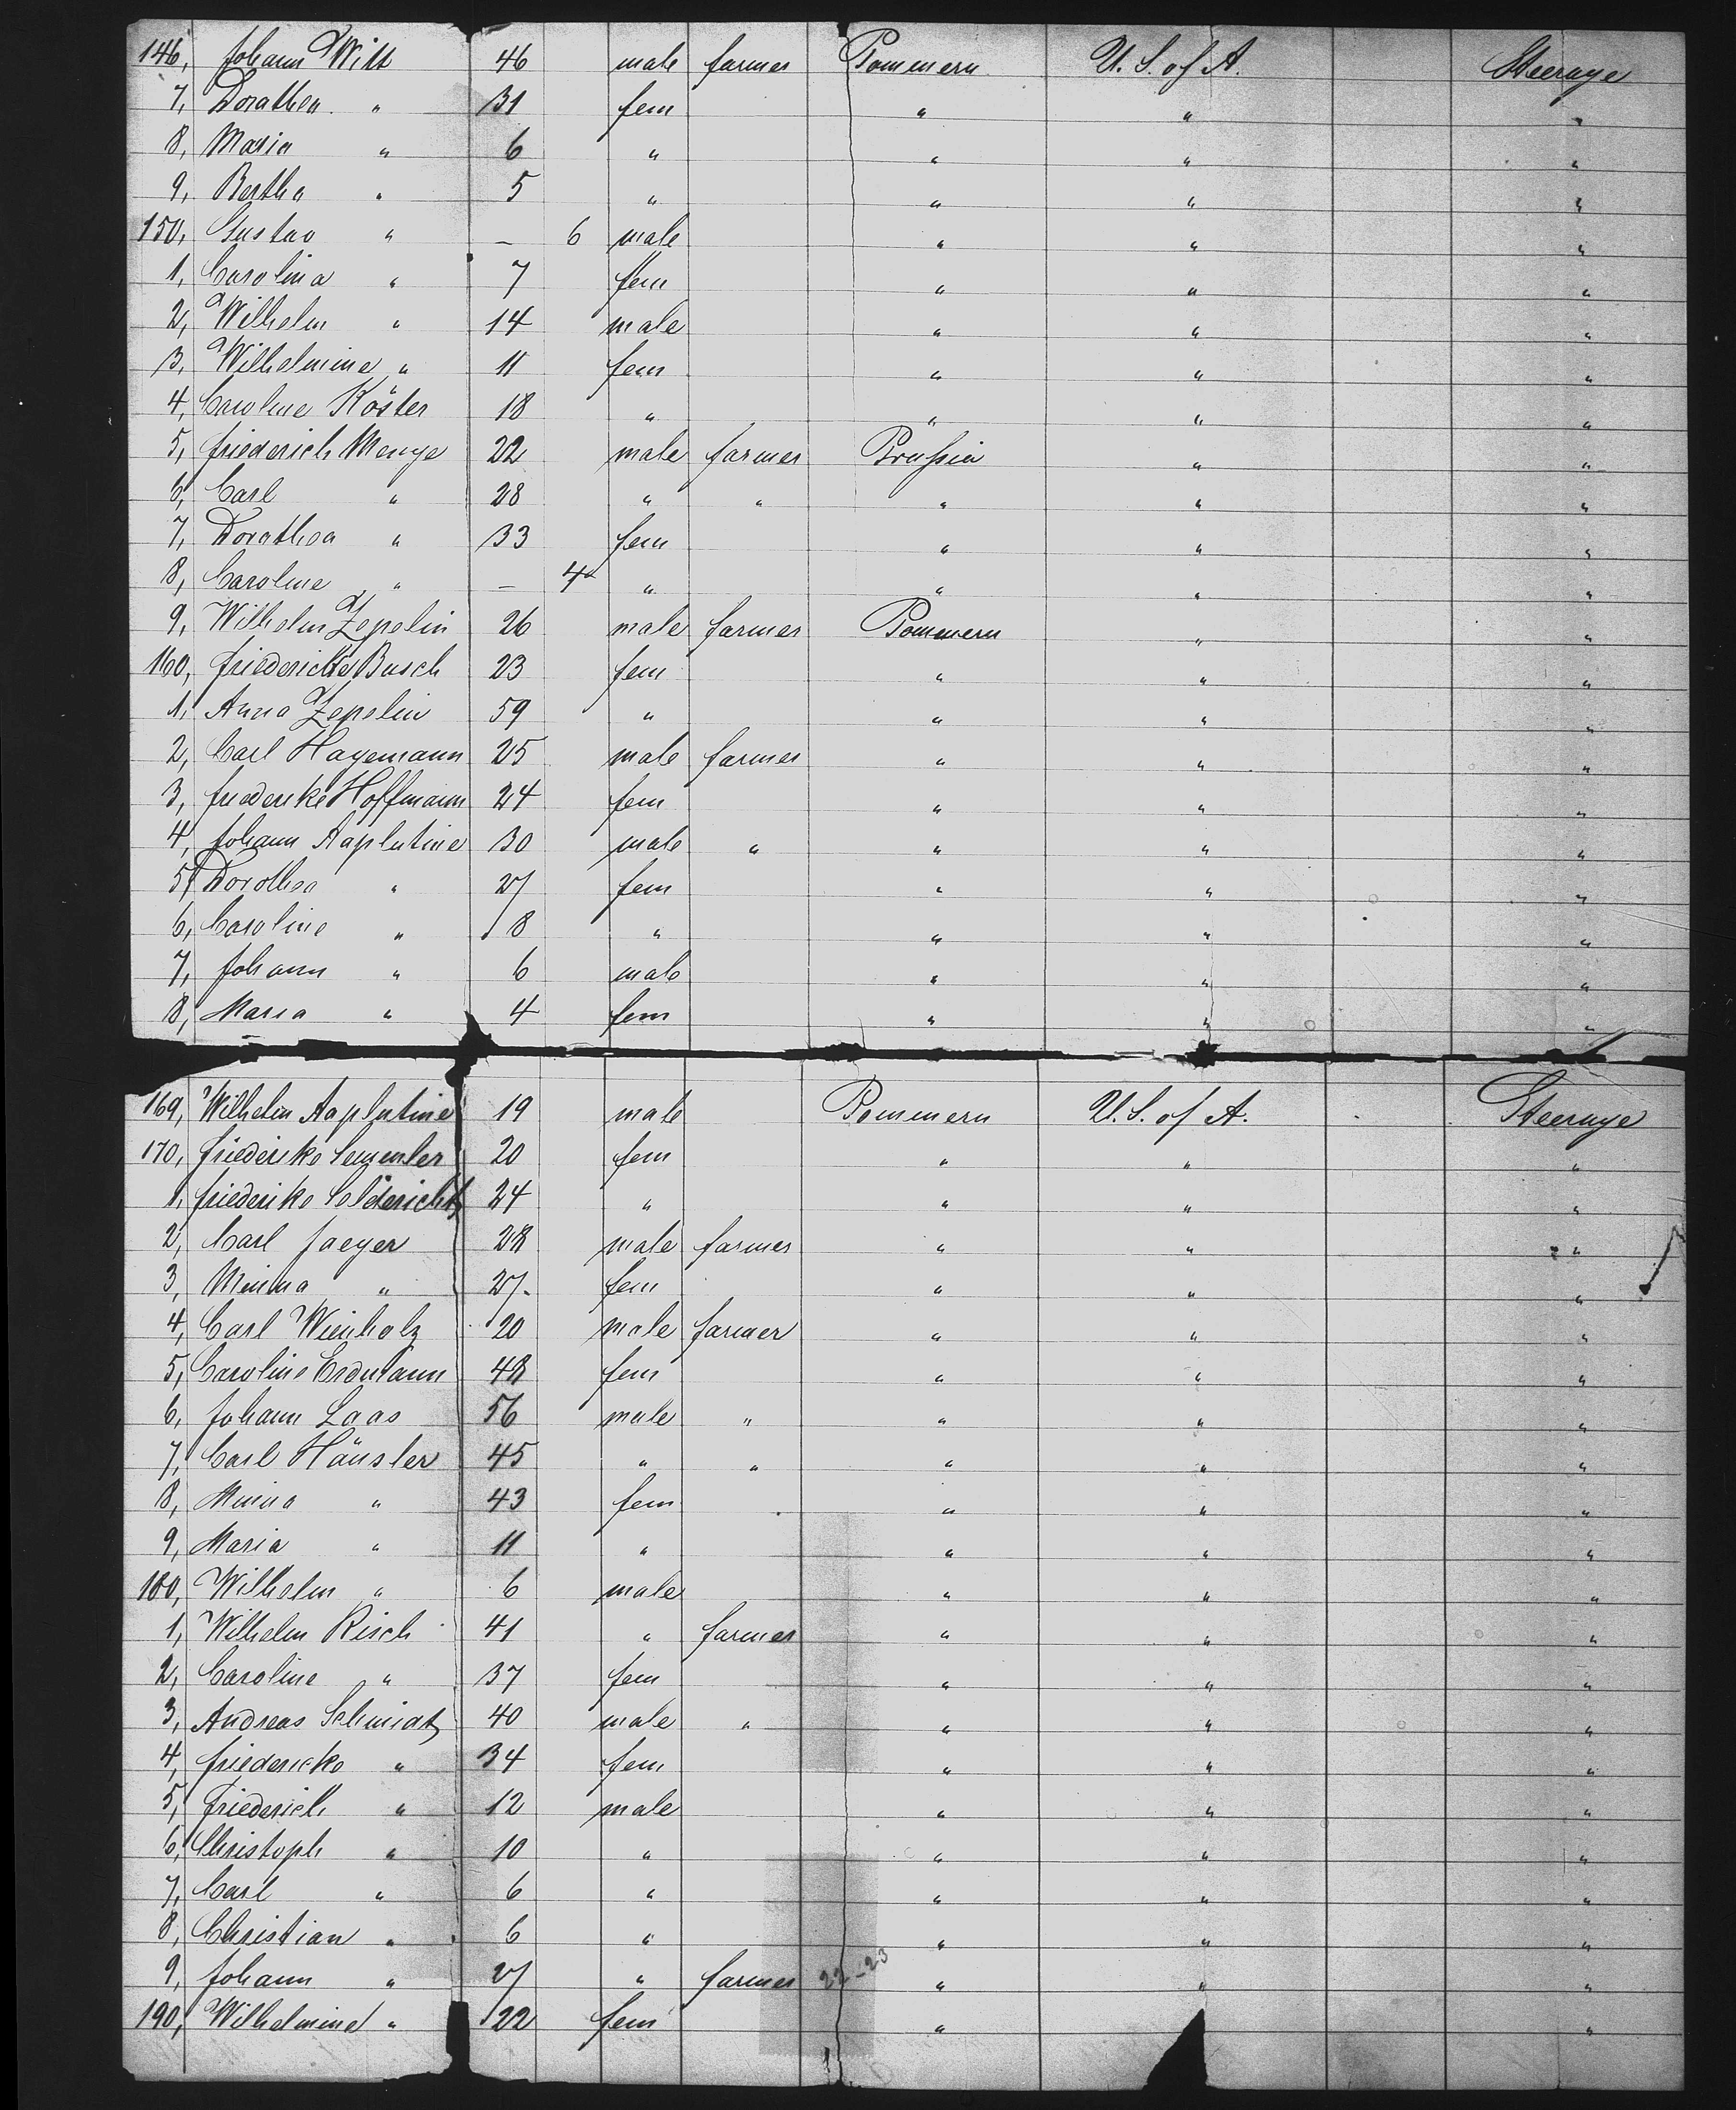 146, Johann Witt 46 male farmer Pommern U. S. of A. Steerage
7, Dorathea " 31 fem " " "
8, Maria " 6 " " " "
9, Bertha " 5 " " " "
150, Gustav " – 6 male " " "
1, Carolina " 7 fem " " "
2, Wilhelm " 14 male " " "
3, Wilhelmine " 11 fem " " "
4, Caroline Köster 18 " " " "
5, Friederich Menge 22 male farmer Prussia " "
6, Carl " 28 " " " " "
7, Dorathea " 33 fem " " "
8, Caroline " – 4 " " " "
9, Wilhelm Zepelin 26 male farmer Pommern " "
160, Friedericke Busch 23 fem " " "
1, Anna Zepelin 59 " " " "
2, Carl Hagemann 25 male farmer " " "
3, Friederike Hoffmann 24 fem " " "
4, Johann Aaplutine 30 male " " " "
5, Dorothea " 27 fem " " "
6, Caroline " 8 " " " "
7, Johann " 6 male " " "
8, Maria " 4 fem " " "
169, Wilhelm Aaplutine 19 male Pommern U. S. of A. Steerage
170, Friederike Semmler 20 fem " " "
1, Friederike 24 " " " "
2, Carl Jaeger 28 male farmer " " "
3, Minna " 27 fem " " "
4, Carl Wienholz 20 male farmer " " "
5, Caroline Erdmann 48 fem " " "
6, Johann Laas 56 male " " " "
7, Carl Häusler 45 " " " " "
8, Minna " 43 fem " " "
9, Maria " 11 " " " "
180, Wilhelm " 6 male " " "
1, Wilhelm Risch 41 " farmer " " "
2, Caroline " 37 fem " " "
3, Andreas Schmidt 40 male " " " "
4, Friedericke " 34 fem " " "
5, Friederich " 12 male " " "
6, Christoph " 10 " " " "
7, Carl " 6 " " " "
8, Christian " 6 " " " "
9, Johann " 27 " farmer 22-23 " " "
190, Wilhelmine " 22 fem " "